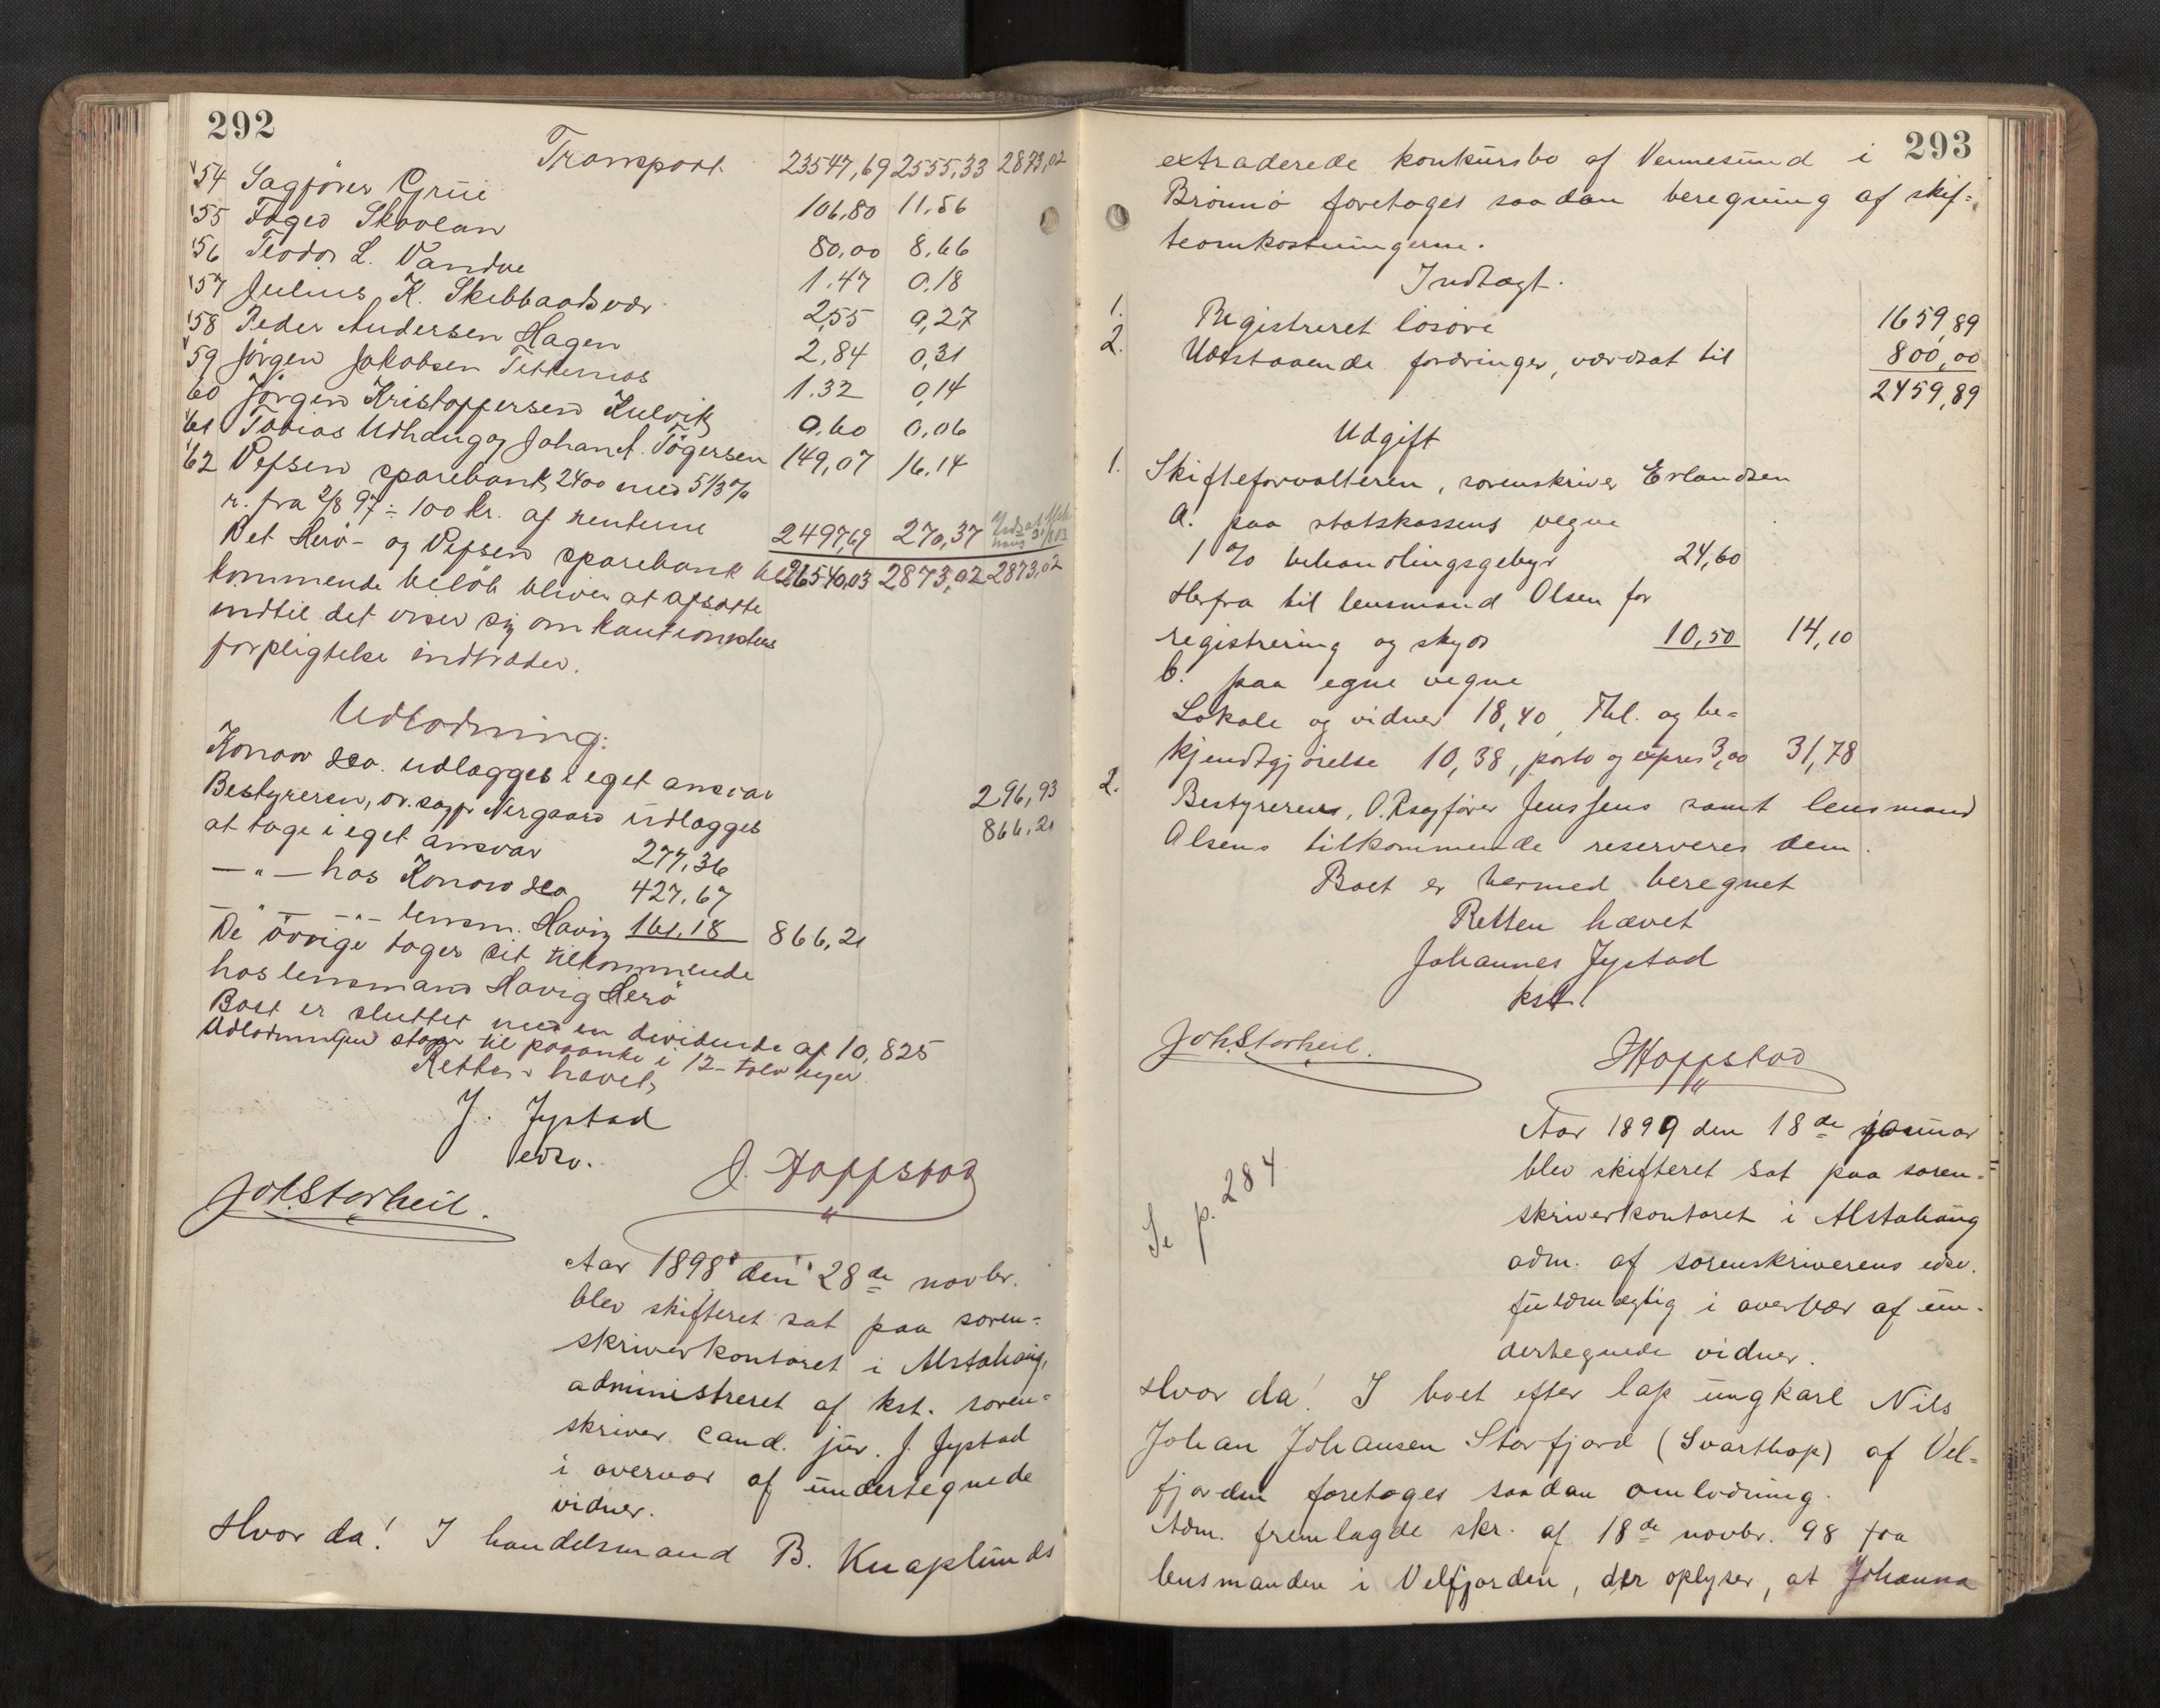 292
Transport 23547,69 2555,33 2873,02
54 Sagförer Grüe 106,80 11,56
55 Foged Skavlan 80,00 8,66
56 Teodor L. Vandve 1.47 0.18
57 Julius K. Skibbaadsvær 2,55 0,27
58 Peder Andersen Hagen 2,84 0,31
59 Jörgen Jakobsen Tetternæs 1.32 0,14
60 Jörgen Kristoffersen Kulvik 0.60 0,06
61 Tobias Udhaug og Johan A. Tögersen 149,07 16,14
62 Vefsen sparebank 2400 med 5 1/3 %
r. fra 2/8 97 ÷ 100 kr. af renterne 2497,69 270,37
Det Herö- og Vefsen sparebank til 26540,03 2873,02 2873,02
kommende belöb bliver at afsætte
indtil det viser sig om kautionistens
forpligtelse indtræder.
Udlodning:
Konow &co. udlægges i eget ansvar 296,93
Bestyreren, o.r.sagf. Nergaard udlægges 866,21
at tage i eget ansvar 277,36
—"— hos Konow &co 427,67
—"— —"— lensm. Havig 161.18 866,21
De övrige tager sit tilkommende
hos lensmand Havig Herö
Boet er sluttet med en dividende af 10,825
Udlodningen staar til paaanke i 12- tolv uger.
Retten hævet,
J. Jystad
edsv.
Joh. Storheil. J. Hoppstad
Aar 1898 den 28de novbr.
blev skifteret sat paa soren-
skriverkontoret i Alstahaug,
administreret af kst. soren-
skriver cand. jur. J. Jystad
i overvær af undertegnede
vidner.
Hvor da! I handelsmand B. Knaplunds
293
extraderede konkursbo af Vennesund i
Brönnö foretages saadan beregning af skif-
teomkostningerne.
Indtægt.
1. Registreret lösöre 1659,89
2. Udestaaende fordringer, værdsat til 800,00
2459,89
Udgift
1. Skifteforvalteren, sorenskriver Erlandsen
a. paa statskassens vegne
1 % behandlingsgebyr 24,60
Herfra til lensmand Olsen for
registrering og skyds 10,50 14,10
b. paa egne vegne
Lokale og vidner 18,40, Tbl. og be-
kjendtgjörelse 10,38, porto og expres 3,00 31,78
2. Bestyrerens, O.R.sagförer Jenssens samt lensmand
Olsens tilkommende reserveres dem.
Boet er hermed beregnet
Retten hævet
Johannes Jystad
kst.
Joh. Storheil. J Hoppstad
Aar 1899 den 18de januar
blev skifteret sat paa soren-
skriverkontoret i Alstahaug
adm. af sorenskriverens edsv.
fuldmægtig i overvær af un-
dertegnede vidner.
Se p. 284
Hvor da! I boet efter lap ungkarl Nils
Johan Johansen Storfjord (Svarthop) af Vel-
fjorden foretages saadan omlodning.
Adm. fremlagde skr. af 18de novbr. 98 fra
lensmanden i Velfjorden, der oplyser, at Johanna